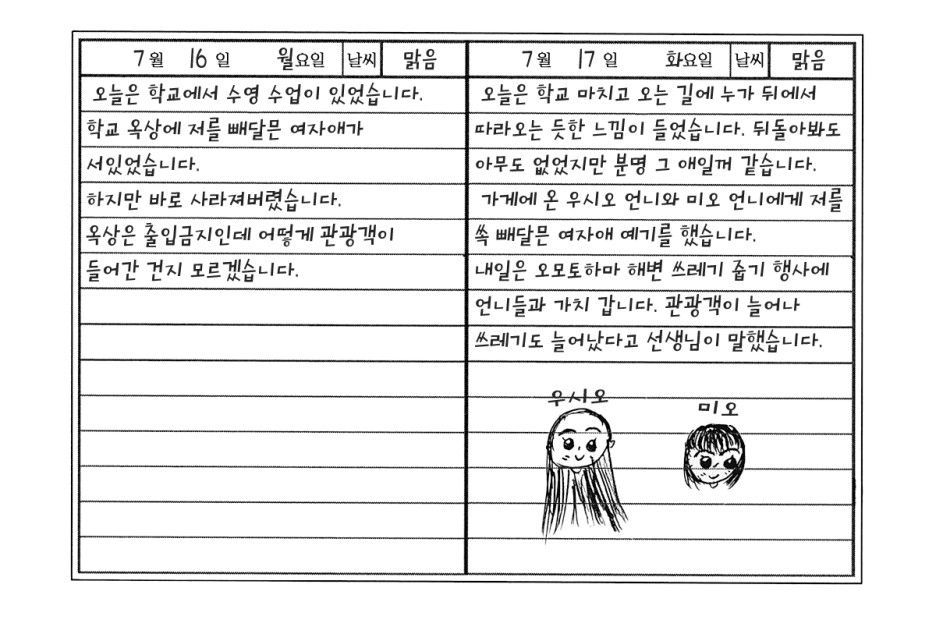 7월 16일 월요일 날씨 맑음
오늘은 학교에서 수영 수업이 있었습니다.
학교 옥상에 저를 빼달믄 여자애가
서있었습니다.
하지만 바로 사라져버렸습니다.
옥상은 출입금지인데 어떻게 관광객이
들어간 건지 모르겠습니다.
7월 17일 화요일 날씨 맑음
오늘은 학교 마치고 오는 길에 누가 뒤에서
따라오는 듯한 느낌이 들었습니다. 뒤돌아봐도
아무도 없었지만 분명 그 애일꺼 같습니다.
가게에 온 우시오 언니와 미오 언니에게 저를
쏙 빼달믄 여자애 예기를 했습니다.
내일은 오모토하마 해변 쓰레기 줍기 행사에
언니들과 가치 갑니다. 관광객이 늘어나
쓰레기도 늘어났다고 선생님이 말했습니다.
우시오
미오